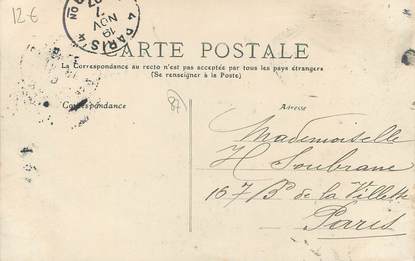 12 €
PARIS
NOV
CARTE POSTALE
La Correspondance au recto n'est pas acceptée par tous les pays étrangers
(Se renseigner à la Poste)
Correspondance
Adresse
87
Mademoiselle
H Soubrane
167 Bd de la Villette
Paris